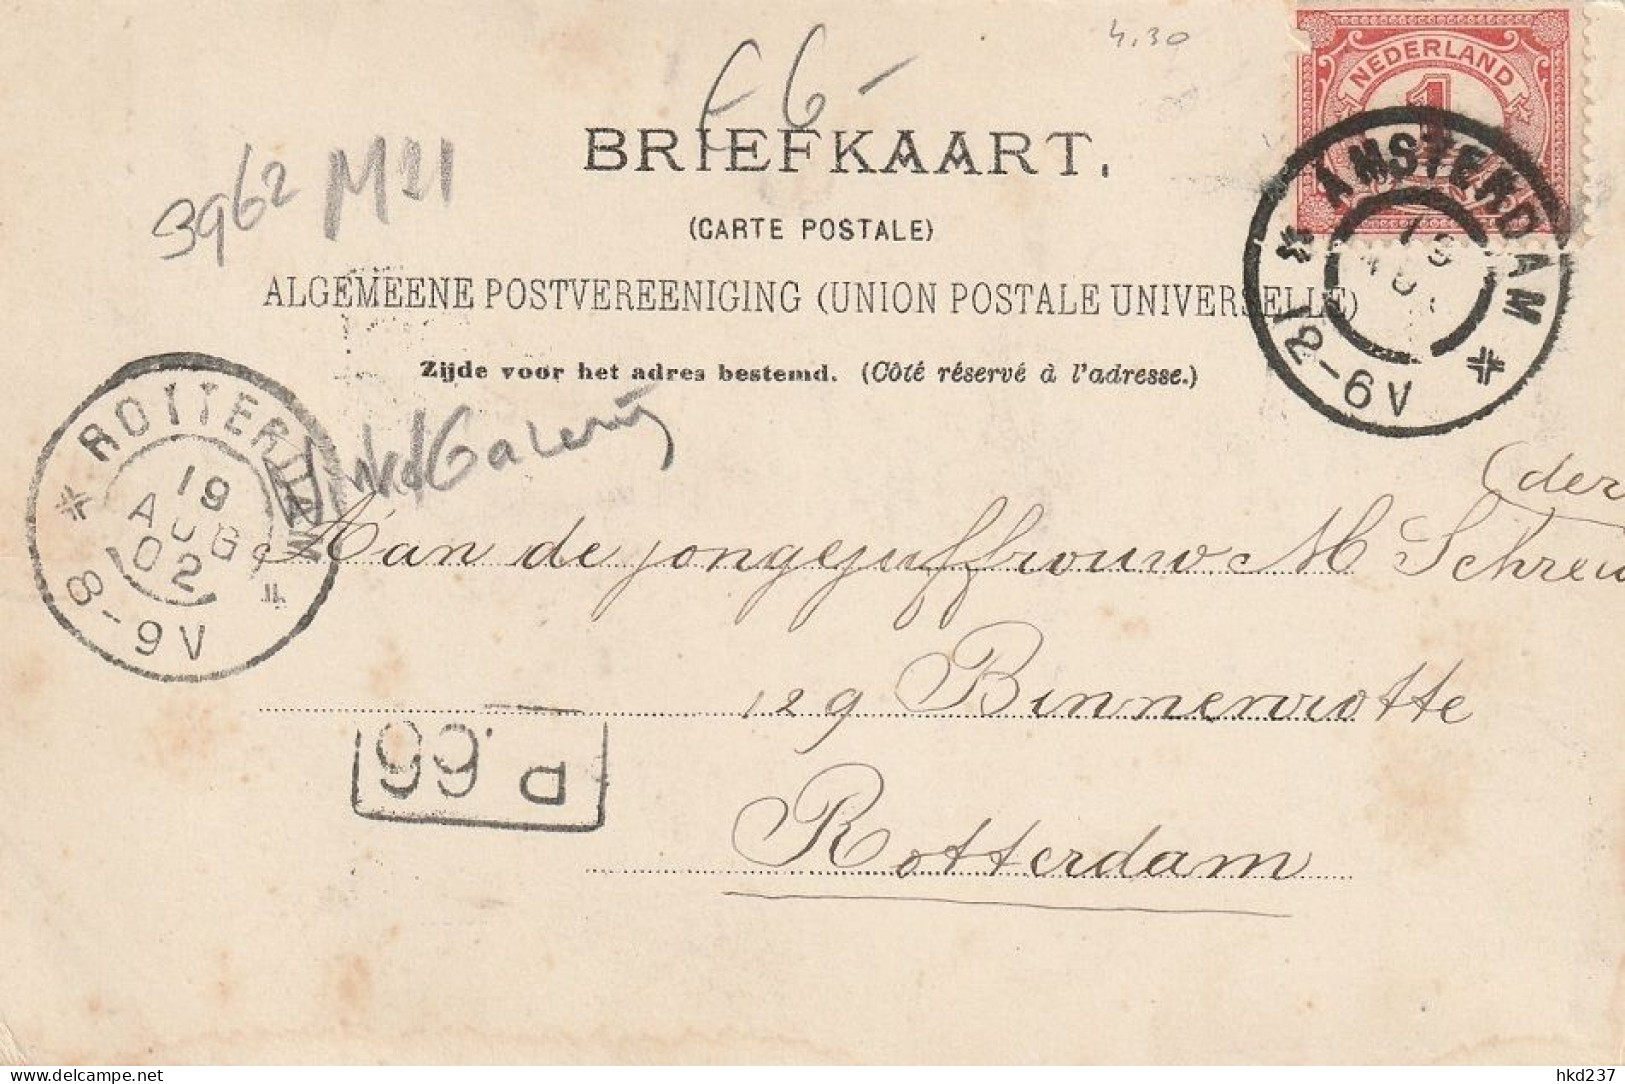 4.30
f 6-
NEDERLAND
1
BRIEFKAART.
3962 M21
(CARTE POSTALE)
AMSTERDAM
ALGEMEENE POSTVEREENIGING (UNION POSTALE UNIVERSELLE)
Zijde voor het adres bestemd. (Côté réservé à l'adresse.)
ROTTERDAM
19
AUG
02
8-9V
(der
Aan de jongejuffrouw M Schreu
129 Binnenrotte
P.66
Rotterdam
hkd237